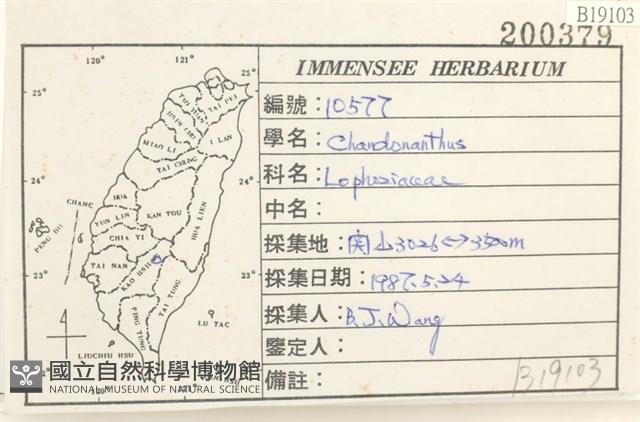 B19103
200379
IMMENSEE HERBARIUM
編號：10577
學名：Chandonanthus
科名：Lophoziaceae
中名：
採集地：関山3026↔3500m
採集日期：1987.5.24
採集人：B.J.Wang
鑒定人：
備註：
B19103
120° 121°
25° 25°
TAO YUAN
TAI PEI
HSIN CHU
I LAN
MIAO LI
TAI CHUNG
24° 24°
CHANG HUA
YUN LIN
NAN TOU
HUA LIEN
PENG HU
CHIA YI
23° 23°
TAI NAN
KAO HSIUNG
TAI TUNG
PING TUNG
LU TAO
LIUCHIU HSU
22° 22°
國立自然科學博物館
NATIONAL MUSEUM OF NATURAL SCIENCE